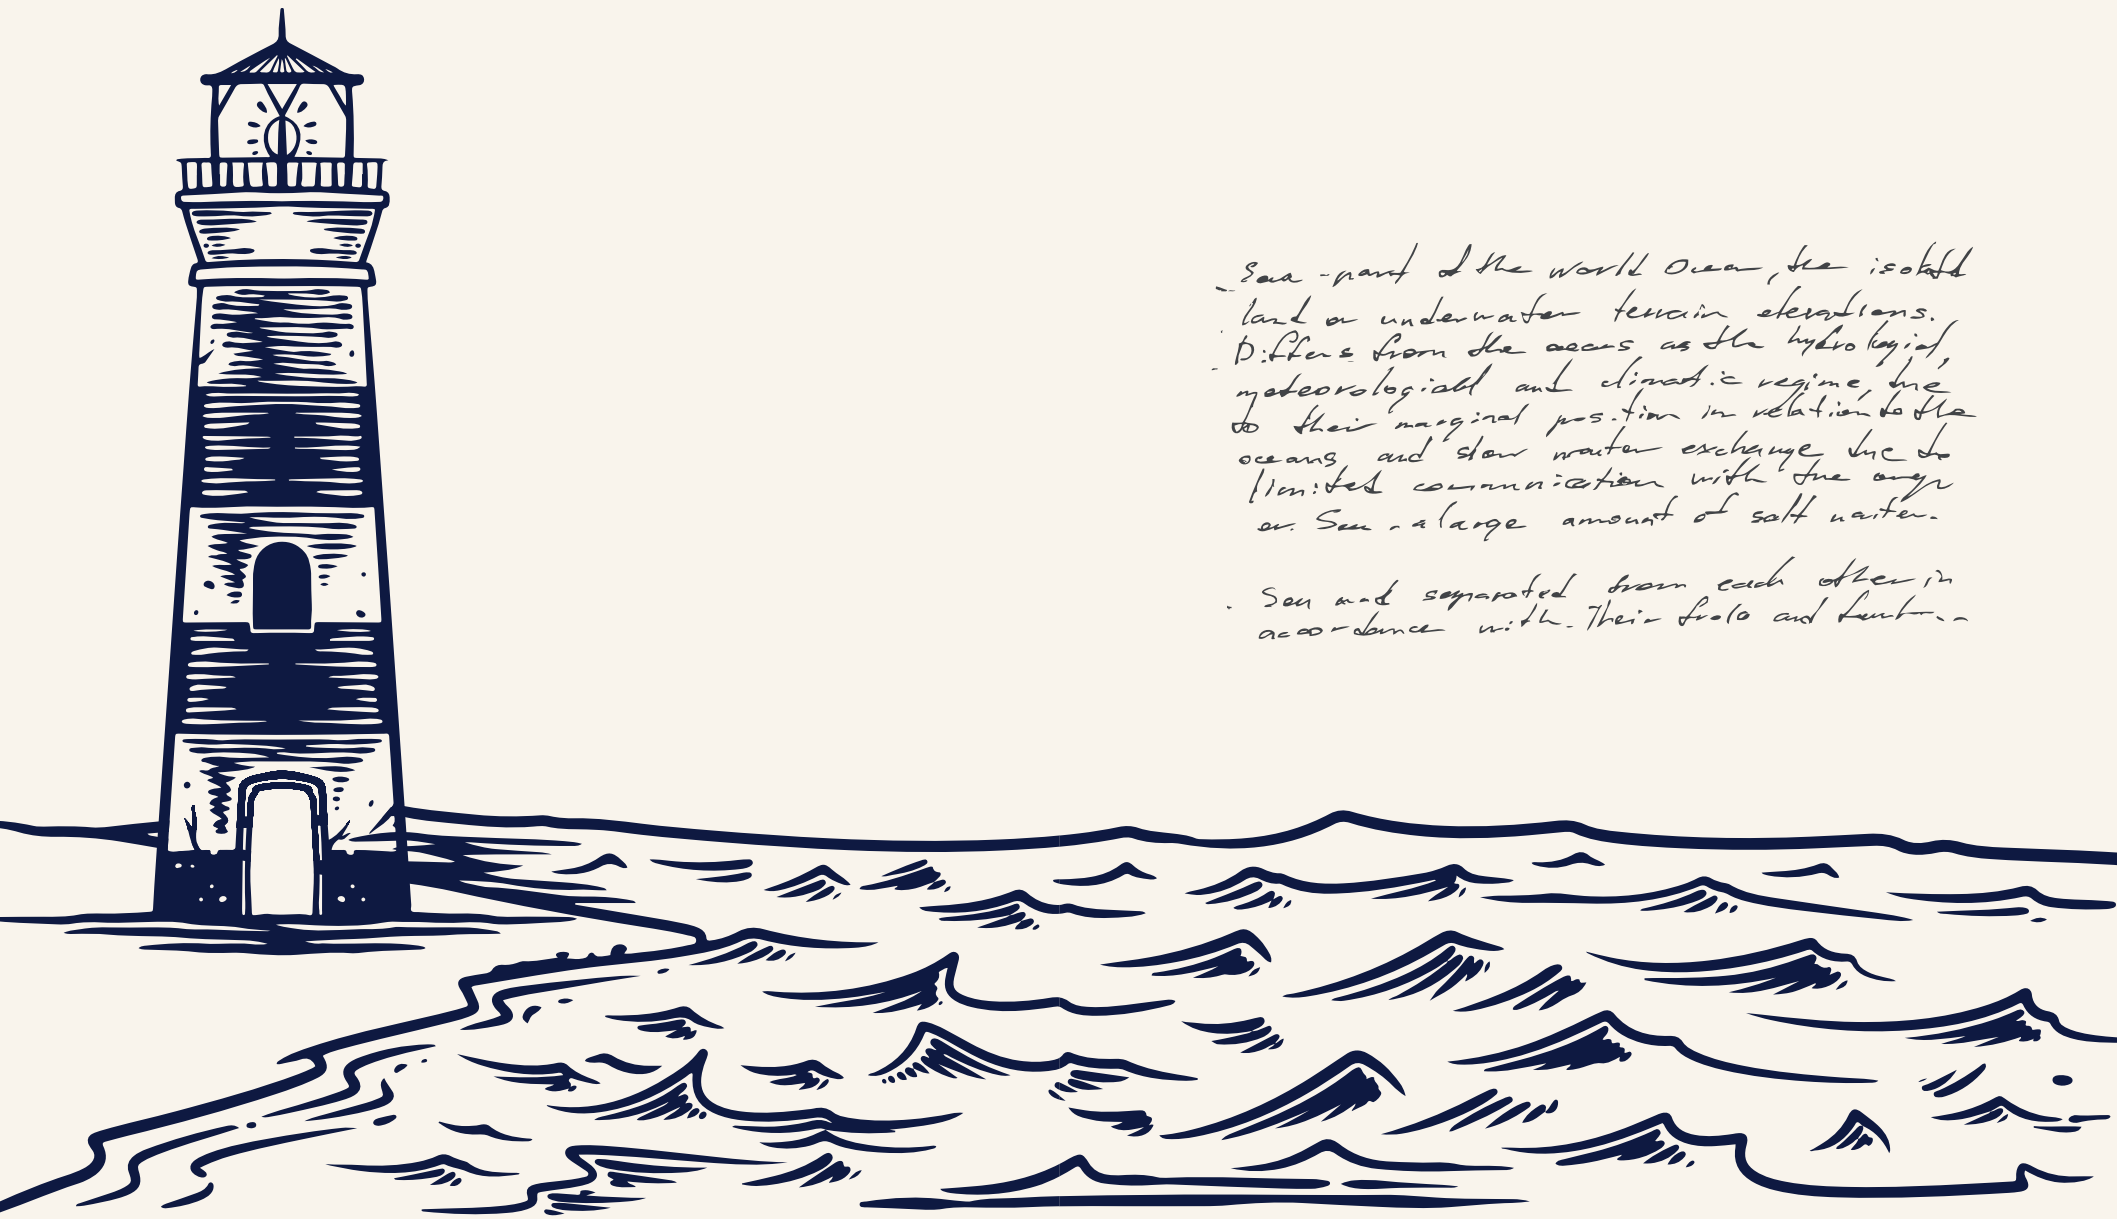 Sea - part of the world Ocean, the isolated
land or underwater terrain elevations.
Differs from the oceans as the hydrological,
meteorological and climatic regime, due
to their marginal position in relation to the
oceans and slow water exchange due to
limited communication with the
er. Sea - a large amount of salt water.
Sea and separated from each other in
accordance with. Their and